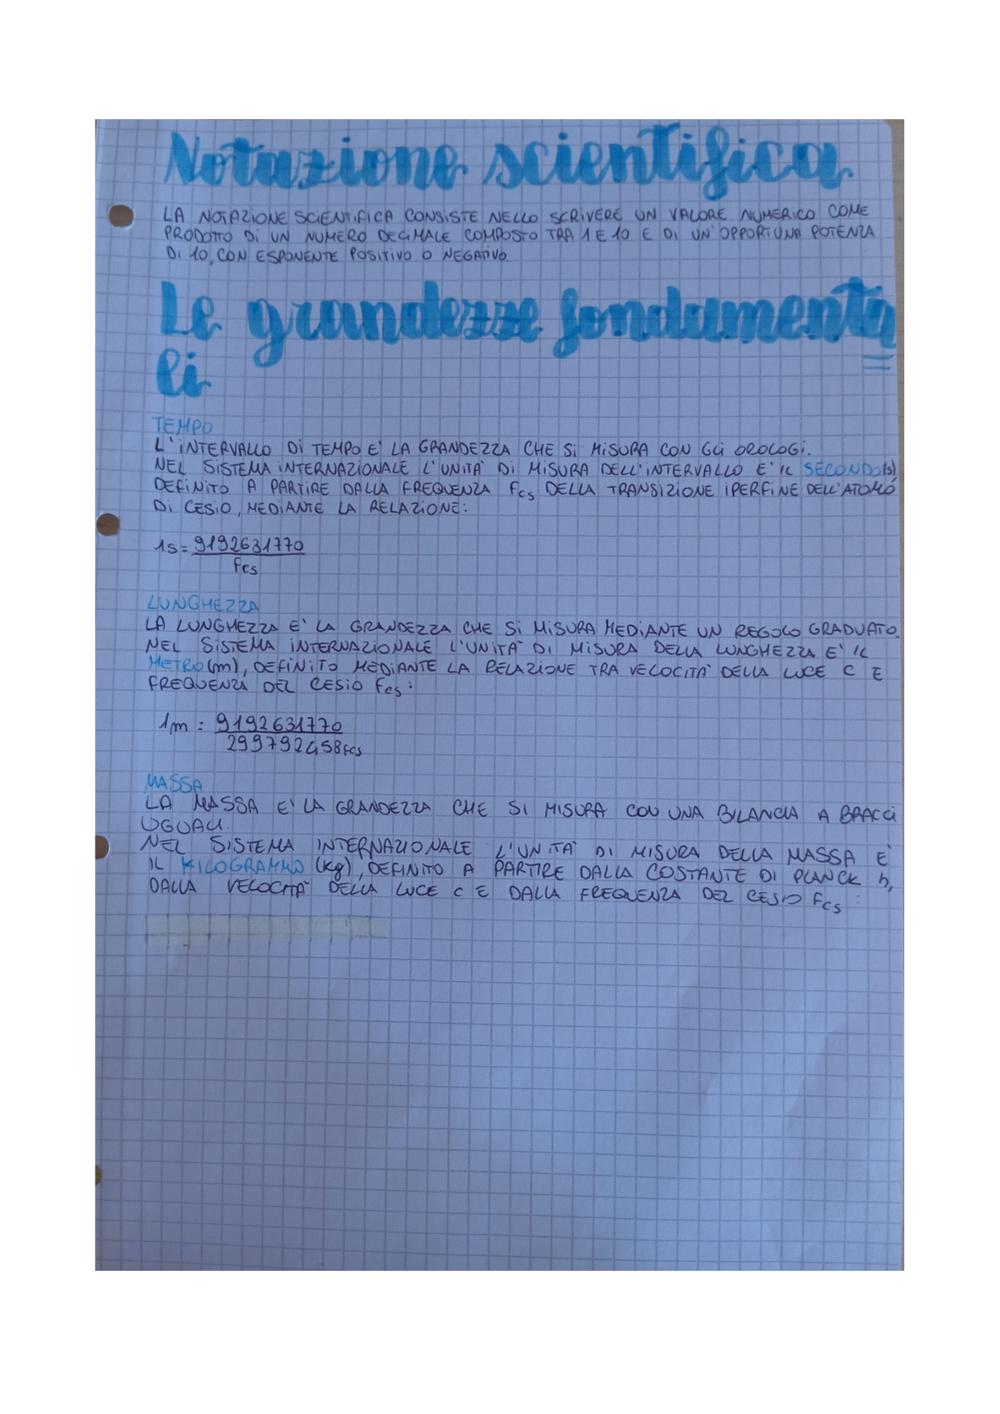 Notazione scientifica
LA NOTAZIONE SCIENTIFICA CONSISTE NELLO SCRIVERE UN VALORE NUMERICO COME
PRODOTTO DI UN NUMERO DECIMALE COMPOSTO TRA 1 E 10 E DI UN'OPPORTUNA POTENZA
DI 10, CON ESPONENTE POSITIVO O NEGATIVO.
Le grandezze fondamenta=
li
TEMPO
L'INTERVALLO DI TEMPO E' LA GRANDEZZA CHE SI MISURA CON GLI OROLOGI.
NEL SISTEMA INTERNAZIONALE L'UNITA' DI MISURA DELL'INTERVALLO E' IL SECONDO(s)
DEFINITO A PARTIRE DALLA FREQUENZA fcs DELLA TRANSIZIONE IPERFINE DELL'ATOMO
DI CESIO, MEDIANTE LA RELAZIONE:
1s = 9192631770
fcs
LUNGHEZZA
LA LUNGHEZZA E' LA GRANDEZZA CHE SI MISURA MEDIANTE UN REGOLO GRADUATO.
NEL SISTEMA INTERNAZIONALE L'UNITA' DI MISURA DELLA LUNGHEZZA E' IL
METRO (m), DEFINITO MEDIANTE LA RELAZIONE TRA VELOCITA' DELLA LUCE C E
FREQUENZA DEL CESIO fcs:
1m = 9192631770
299792458fcs
MASSA
LA MASSA E' LA GRANDEZZA CHE SI MISURA CON UNA BILANCIA A BRACCI
UGUALI.
NEL SISTEMA INTERNAZIONALE L'UNITA' DI MISURA DELLA MASSA E'
IL KILOGRAMMO (kg), DEFINITO A PARTIRE DALLA COSTANTE DI PLANCK h,
DALLA VELOCITA' DELLA LUCE C E DALLA FREQUENZA DEL CESIO fcs: